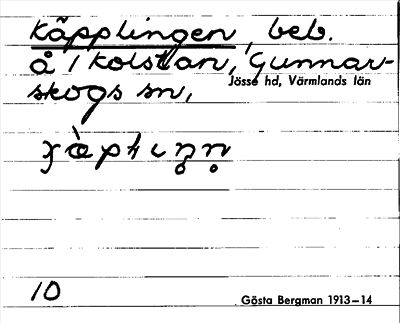 Käpplingen, beb.
å / Kolstan, Gunnar-
skogs sn,
Jösse hd, Värmlands län
10
Gösta Bergman 1913–14